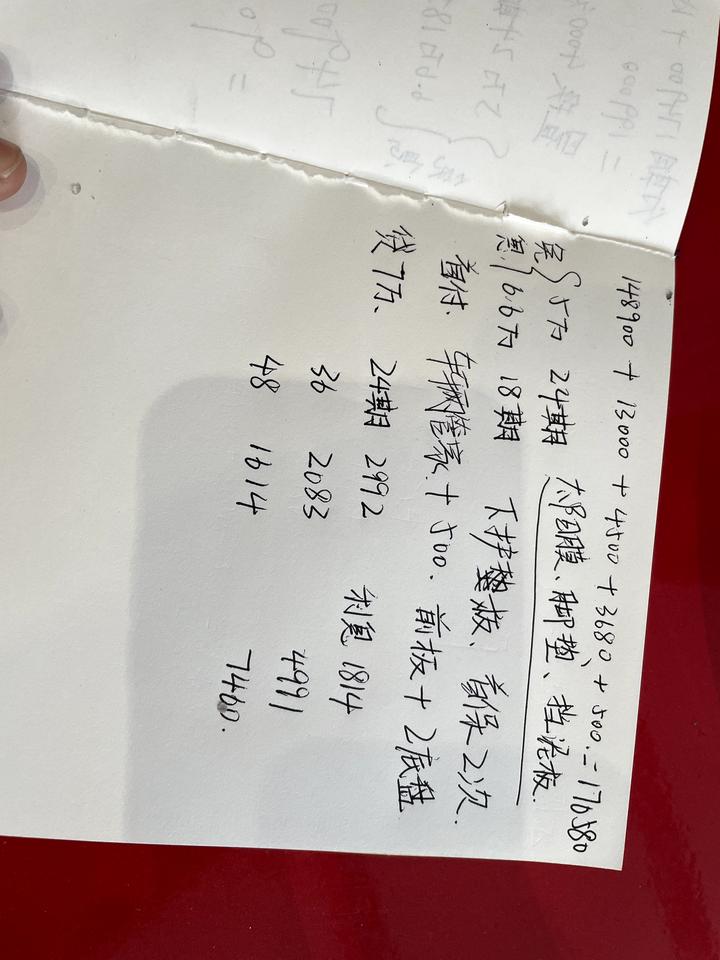 148900 + 13000 + 4500 + 3680 + 500. = 176580
免息{ 5万 24期 太阳膜、脚垫、挡泥板.
6.6万 18期 下护整板、首保2次.
首付. 车辆管家 + 500. 前板 + 2底盘
贷7万、 24期 2992 利息 1814
36 2083 4991
48 1614 7460.